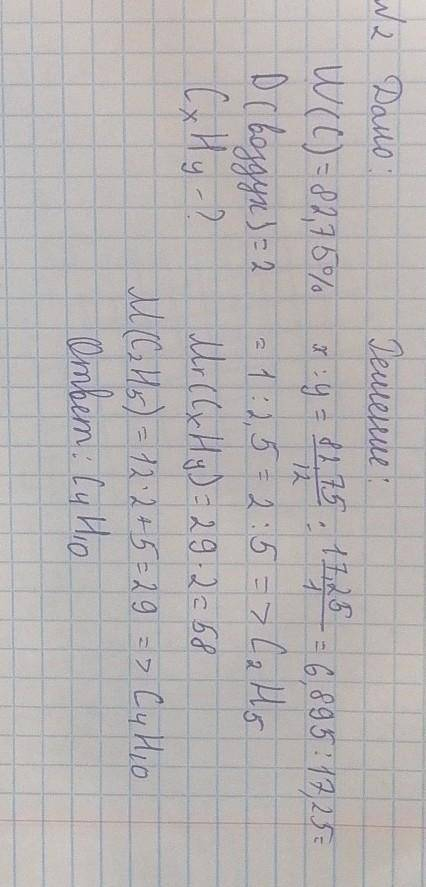 №2 Дано:
W(C) = 82,75%
D(воздух) = 2
CxHy - ?
Решение:
x : y = 82,75/12 : 17,25/1 = 6,895 : 17,25 =
= 1 : 2,5 = 2 : 5 => C2H5
Mr(CxHy) = 29 · 2 = 58
M(C2H5) = 12 · 2 + 5 = 29 => C4H10
Ответ: C4H10